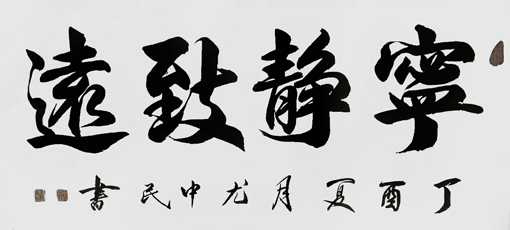 寧静致遠
丁酉夏月尤中民書